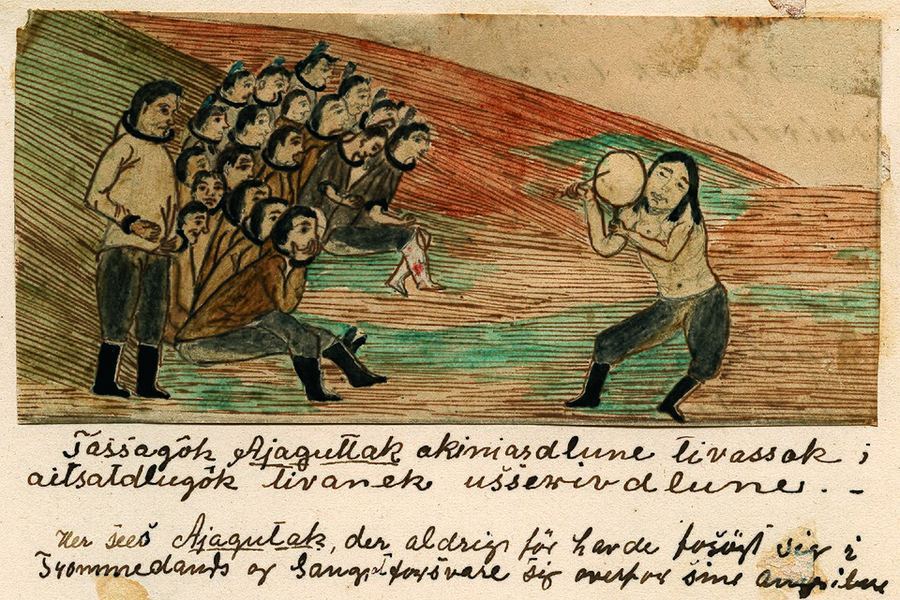 Tássagôk Ajaguttak akiniasdlune tivassok i
aitsatdlugôk tivanek uššerivdlune. -
Her sees Ajagutak, der aldrig för havde forsögt sig i
Trommedands og Sang, forsvare sig overfor sine